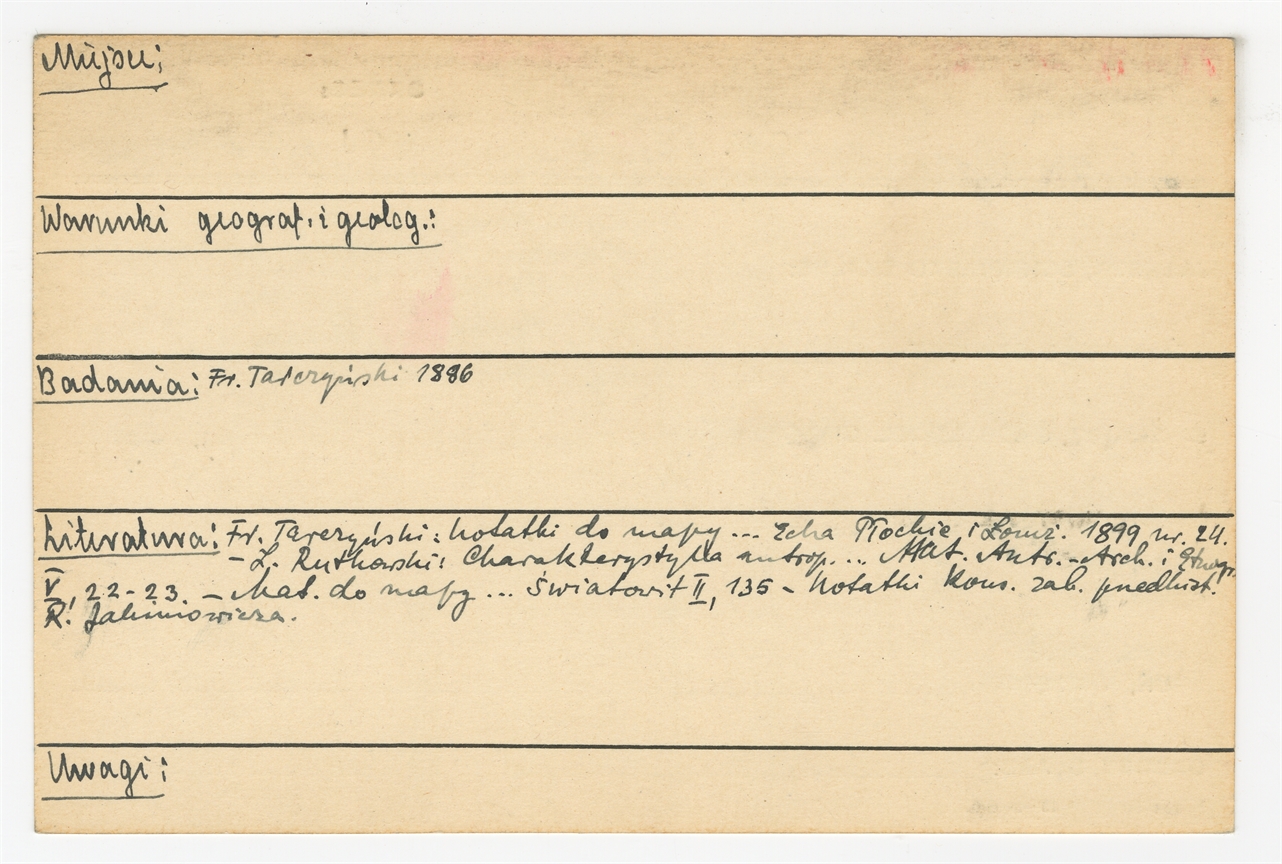 Miejsce:
Warunki geograf. i geolog.:
Badania: Fr. Tarczyński 1886
Literatura: Fr. Tarczyński: Notatki do mapy ... Echa Płockie i Łomż. 1899 nr. 24.
- L. Rutkowski: Charakterystyka antrop. ... Mat. Antr.-Arch. i Etnogr.
V, 22-23. - Mat. do mapy ... Światowit II, 135 - Notatki Kons. zab. przedhist.
R. Jakimowicza.
Uwagi: